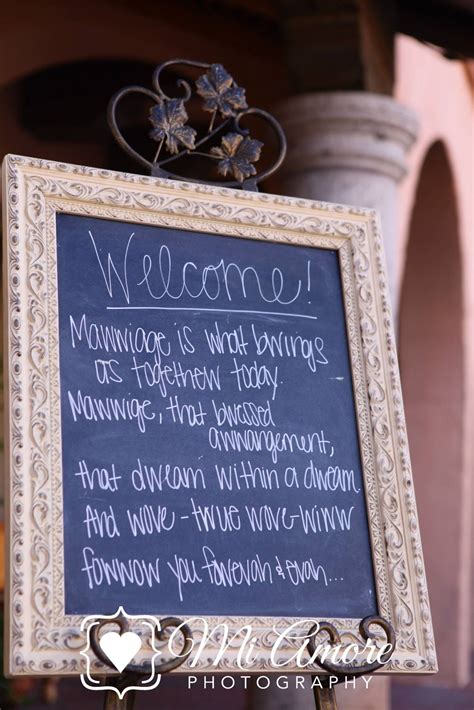 Welcome!
Mawwiage is what bwings
us togethew today.
Mawwige, that bwessed
awwangement,
that dweam within a dweam.
And wove-twue wove-wiww
fowwow you fowevah & evah...
Mi Amore
PHOTOGRAPHY